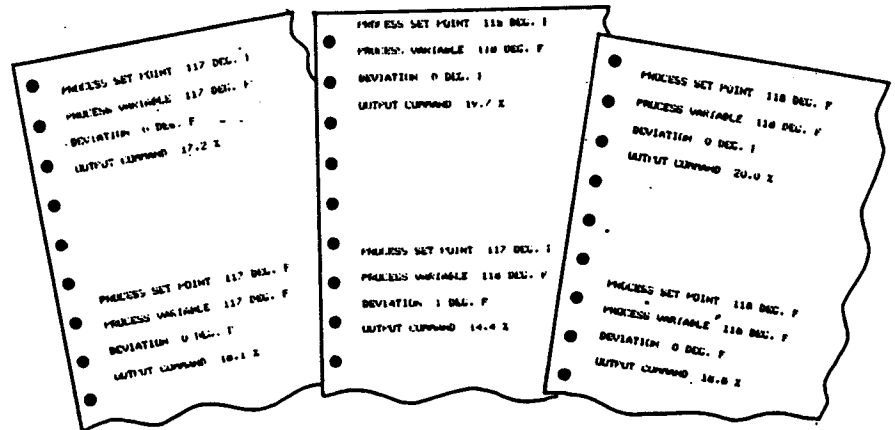 PROCESS SET POINT 117 DEG. F
PROCESS VARIABLE 117 DEG. F
DEVIATION 0 DEG. F
OUTPUT COMMAND 17.2 %
PROCESS SET POINT 117 DEG. F
PROCESS VARIABLE 117 DEG. F
DEVIATION 0 DEG. F
OUTPUT COMMAND 18.1 %
PROCESS SET POINT 118 DEG. F
PROCESS VARIABLE 118 DEG. F
DEVIATION 0 DEG. F
OUTPUT COMMAND 19.7 %
PROCESS SET POINT 117 DEG. F
PROCESS VARIABLE 118 DEG. F
DEVIATION 1 DEG. F
OUTPUT COMMAND 14.4 %
PROCESS SET POINT 118 DEG. F
PROCESS VARIABLE 118 DEG. F
DEVIATION 0 DEG. F
OUTPUT COMMAND 20.0 %
PROCESS SET POINT 118 DEG. F
PROCESS VARIABLE 118 DEG. F
DEVIATION 0 DEG. F
OUTPUT COMMAND %